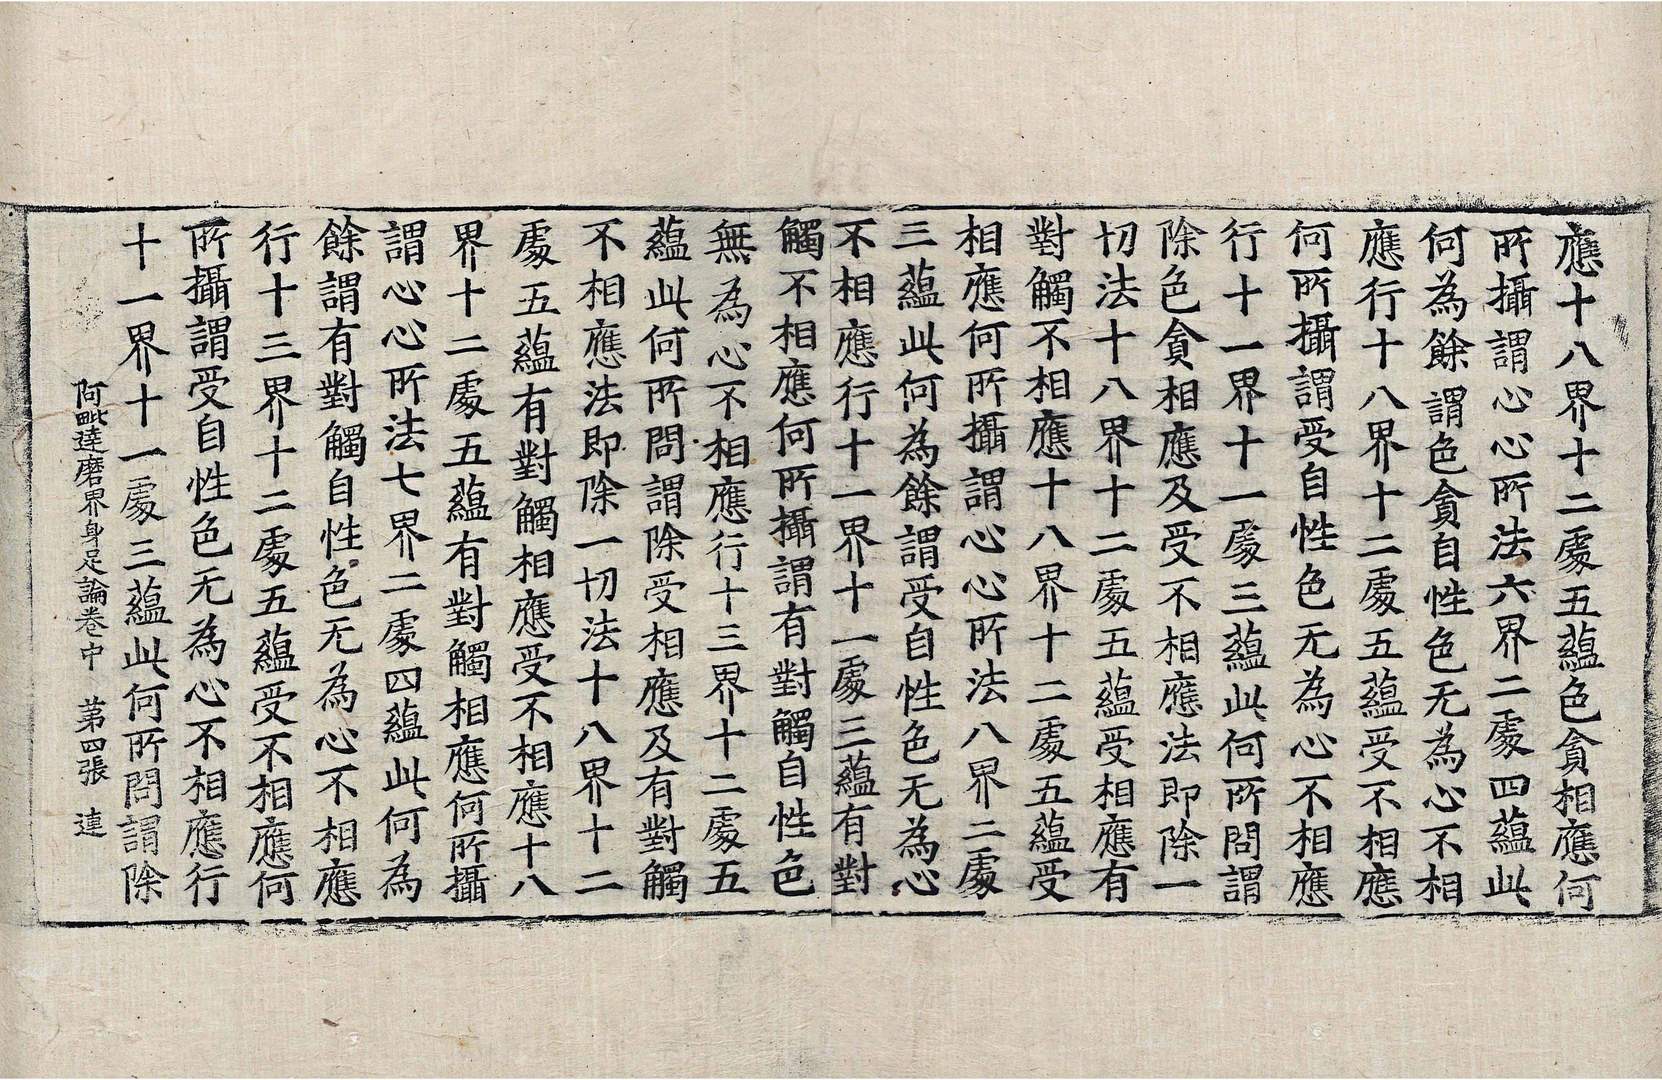 應十八界十二處五蘊色貪相應何
所攝謂心心所法六界二處四蘊此
何為餘謂色貪自性色无為心不相
應行十八界十二處五蘊受不相應
何所攝謂受自性色无為心不相應
行十一界十一處三蘊此何所問謂
除色貪相應及受不相應法即除一
切法十八界十二處五蘊受相應有
對觸不相應十八界十二處五蘊受
相應何所攝謂心心所法八界二處
三蘊此何為餘謂受自性色无為心
不相應行十一界十一處三蘊有對
觸不相應何所攝謂有對觸自性色
無為心不相應行十三界十二處五
蘊此何所問謂除受相應及有對觸
不相應法即除一切法十八界十二
處五蘊有對觸相應受不相應十八
界十二處五蘊有對觸相應何所攝
謂心心所法七界二處四蘊此何為
餘謂有對觸自性色无為心不相應
行十三界十二處五蘊受不相應何
所攝謂受自性色无為心不相應行
十一界十一處三蘊此何所問謂除
阿毗達磨界身足論卷中　第四張　連